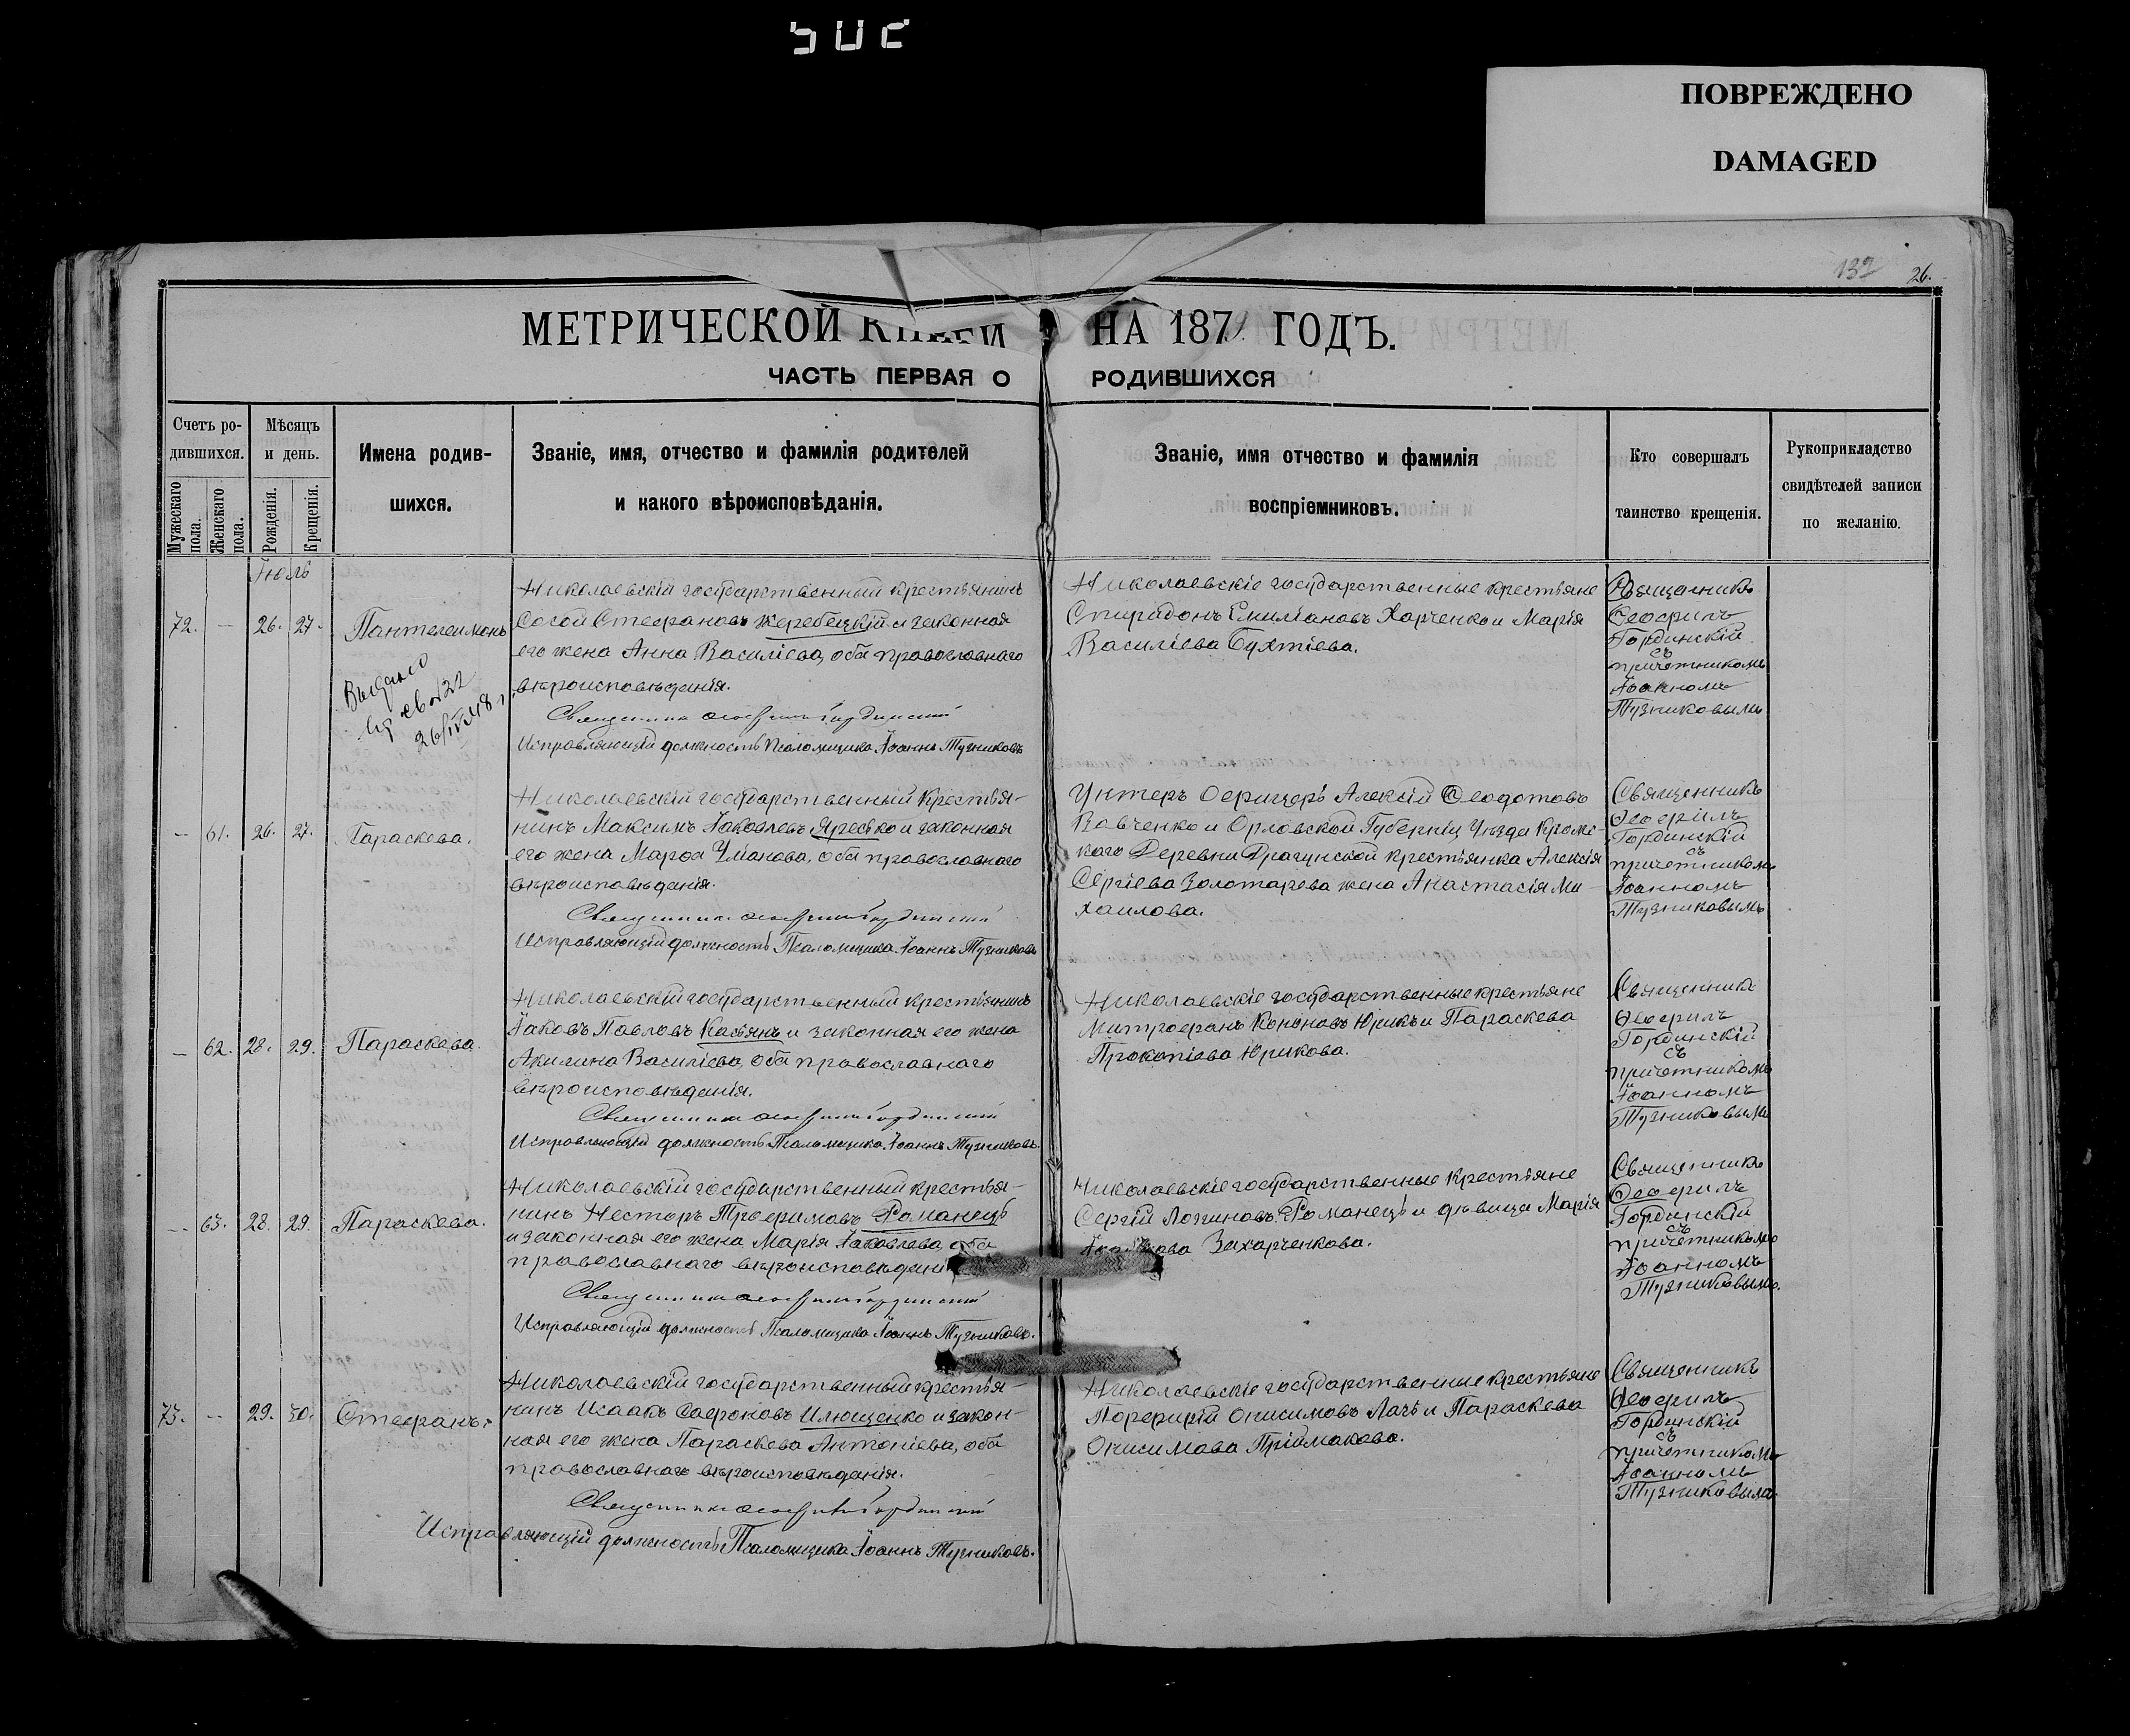 ПОВРЕЖДЕНО
DAMAGED
132
26.
МЕТРИЧЕСКОЙ КНИГИ НА 187 ГОДЪ.
ЧАСТЬ ПЕРВАЯ О РОДИВШИХСЯ
Счетъ ро-
дившихся.
Мужескаго пола.
Женскаго пола.
Мѣсяцъ
и день.
Рожденія.
Крещенія.
Имена родив-
шихся.
Званіе, имя, отчество и фамилія родителей
и какого вѣроисповѣданія.
Званіе, имя отчество и фамилія
воспріемниковъ.
Кто совершалъ
таинство крещенія.
Рукоприкладство
свидѣтелей записи
по желанію.
Іюль
72. — 26. 27. Пантелеимонъ
Выдано
Николаевскій государственный крестьянинъ
Стефановъ Жеребецкій и законная
его жена Анна Василіева, оба православнаго
вѣроисповѣданія.
Священникъ Ѳеофилъ Гординскій
Исправляющій должность Псаломщика Іоаннъ Тузниковъ
Николаевскіе государственные крестьяне
Спиридонъ Емиліановъ Харченко и Марія
Василіева Бухтіева.
Священникъ
Ѳеофилъ
Гординскій
съ
причетникомъ
Іоанномъ
Тузниковымъ
— 61. 26. 27. Параскева.
Николаевскій государственный крестья-
нинъ Максимъ Іаковлевъ Яресько и законная
его жена Марфа Уліанова, оба православнаго
вѣроисповѣданія.
Священникъ Ѳеофилъ Гординскій
Исправляющій должность Псаломщика Іоаннъ Тузниковъ
Унтеръ Офицеръ Алексій Ѳеодотовъ
Вовченко и Орловской Губерніи Уѣзда Кромс-
каго Деревни Драгунской крестьянка Алексія
Сергіева Золотарева жена Анастасія Ми-
хаилова.
Священникъ
Ѳеофилъ
Гординскій
съ
причетникомъ
Іоанномъ
Тузниковымъ
— 62. 28. 29. Параскева.
Николаевскій государственный крестьянинъ
Іаковъ Павловъ Касьянъ и законная его жена
Акилина Василіева, оба православнаго
вѣроисповѣданія.
Священникъ Ѳеофилъ Гординскій
Исправляющій должность Псаломщика Іоаннъ Тузниковъ.
Николаевскіе государственные крестьяне
Митрофанъ Кононовъ Юрикъ и Параскева
Прокопіева Юрикова.
Священникъ
Ѳеофилъ
Гординскій
съ
причетникомъ
Іоанномъ
Тузниковымъ
— 63. 28. 29. Параскева.
Николаевскій государственный крестья-
нинъ Несторъ Трофимовъ Романецъ
и законная его жена Марія Іаковлева, оба
православнаго
Священникъ Ѳеофилъ Гординскій
Исправляющій должность Псаломщика Іоаннъ Тузниковъ.
Николаевскіе государственные крестьяне
Сергій Логиновъ Романецъ и дѣвица Марія
Захарченкова.
Священникъ
Ѳеофилъ
Гординскій
съ
причетникомъ
Іоанномъ
Тузниковымъ.
73. — 29. 30. Стефанъ.
Николаевскій государственный крестья-
нинъ Исаакъ Сафроновъ Илющенко и закон-
ная его жена Параскева Антоніева, оба
православнаго вѣроисповѣданія.
Священникъ Ѳеофилъ Гординскій
Исправляющій должность Псаломщика Іоаннъ Тузниковъ.
Николаевскіе государственные крестьяне
Порфирій Онисимовъ Лачъ и Параскева
Онисимова Пріймакова.
Священникъ
Ѳеофилъ
Гординскій
съ
причетникомъ
Іоанномъ
Тузниковымъ